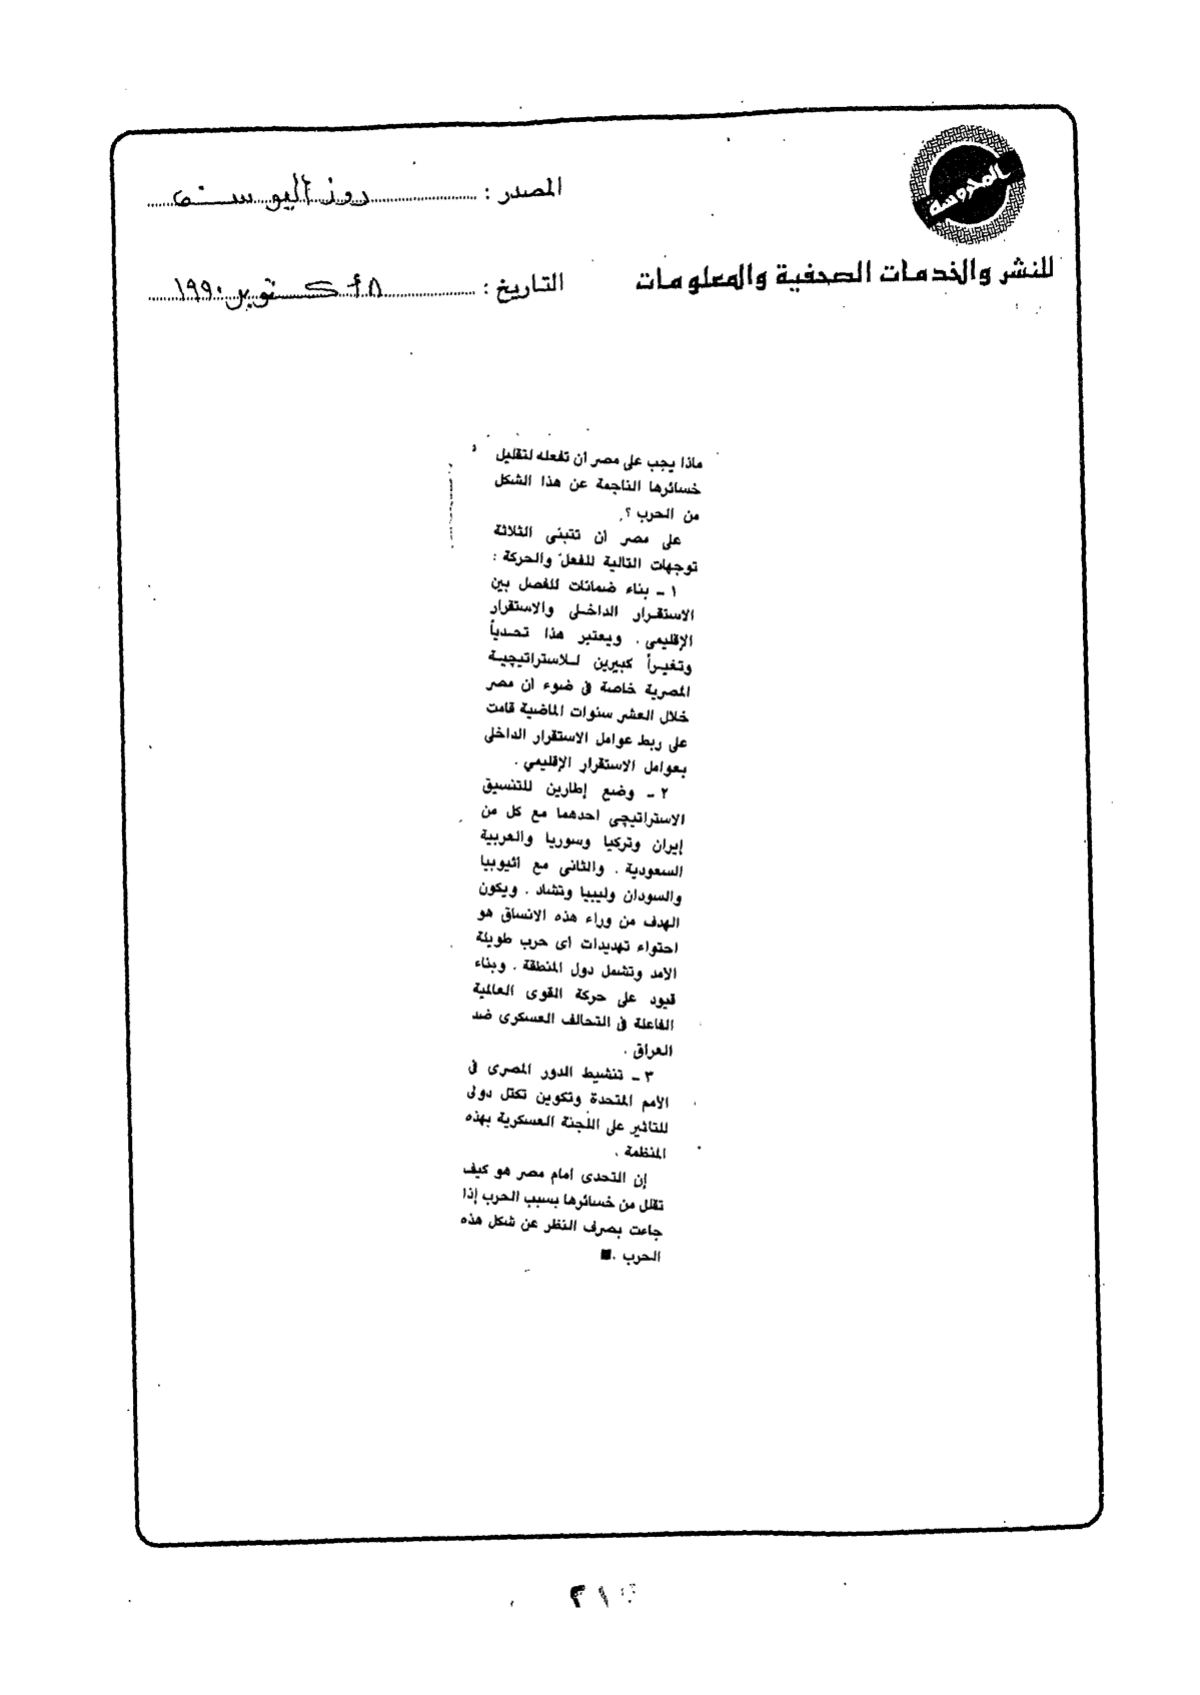 المحروسة
المصدر : روز اليوسف
للنشر والخدمات الصحفية والمعلومات
التاريخ : ٨ أكتوبر ١٩٩٠
ماذا يجب على مصر ان تفعله لتقليل
خسائرها الناجمة عن هذا الشكل
من الحرب ؟
على مصر ان تتبنى الثلاثة
توجهات التالية للفعل والحركة :
١ ـ بناء ضمانات للفصل بين
الاستقرار الداخلى والاستقرار
الإقليمى . ويعتبر هذا تحدياً
وتغيراً كبيرين للاستراتيجية
المصرية خاصة فى ضوء ان مصر
خلال العشر سنوات الماضية قامت
على ربط عوامل الاستقرار الداخلى
بعوامل الاستقرار الإقليمي .
٢ ـ وضع إطارين للتنسيق
الاستراتيجى احدهما مع كل من
إيران وتركيا وسوريا والعربية
السعودية . والثانى مع اثيوبيا
والسودان وليبيا وتشاد . ويكون
الهدف من وراء هذه الانساق هو
احتواء تهديدات اى حرب طويلة
الامد وتشمل دول المنطقة . وبناء
قيود على حركة القوى العالمية
الفاعلة فى التحالف العسكرى ضد
العراق .
٣ ـ تنشيط الدور المصرى فى
الأمم المتحدة وتكوين تكتل دولى
للتاثير على اللجنة العسكرية بهذه
المنظمة .
إن التحدى امام مصر هو كيف
تقلل من خسائرها بسبب الحرب إذا
جاءت بصرف النظر عن شكل هذه
الحرب . ■